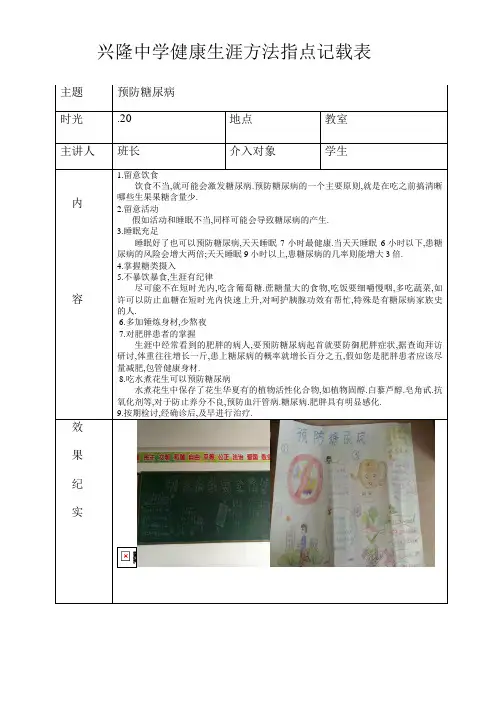 兴隆中学健康生涯方法指点记载表
主题 预防糖尿病
时光 .20 地点 教室
主讲人 班长 介入对象 学生
内
容
1.留意饮食
饮食不当,就可能会激发糖尿病.预防糖尿病的一个主要原则,就是在吃之前搞清晰
哪些生果果糖含量少.
2.留意活动
假如活动和睡眠不当,同样可能会导致糖尿病的产生.
3.睡眠充足
睡眠好了也可以预防糖尿病,天天睡眠 7 小时最健康.当天天睡眠 6 小时以下,患糖
尿病的风险会增大两倍;天天睡眠 9 小时以上,患糖尿病的几率则能增大 3 倍.
4.掌握糖类摄入
5.不暴饮暴食,生涯有纪律
尽可能不在短时光内,吃含葡萄糖.蔗糖量大的食物,吃饭要细嚼慢咽,多吃蔬菜,如
许可以防止血糖在短时光内快速上升,对呵护胰腺功效有帮忙,特殊是有糖尿病家族史
的人.
6.多加锤炼身材,少熬夜
7.对肥胖患者的掌握
生涯中经常看到的肥胖的病人,要预防糖尿病起首就要防御肥胖症状,据查询拜访
研讨,体重往往增长一斤,患上糖尿病的概率就增长百分之五,假如您是肥胖患者应该尽
量减肥,包管健康身材.
8.吃水煮花生可以预防糖尿病
水煮花生中保存了花生华夏有的植物活性化合物,如植物固醇.白藜芦醇.皂角甙.抗
氧化剂等,对于防止养分不良,预防血汗管病.糖尿病.肥胖具有明显感化.
9.按期检讨,经确诊后,及早进行治疗.
效
果
纪
实
平等 公正 法治 爱国
预防糖尿病